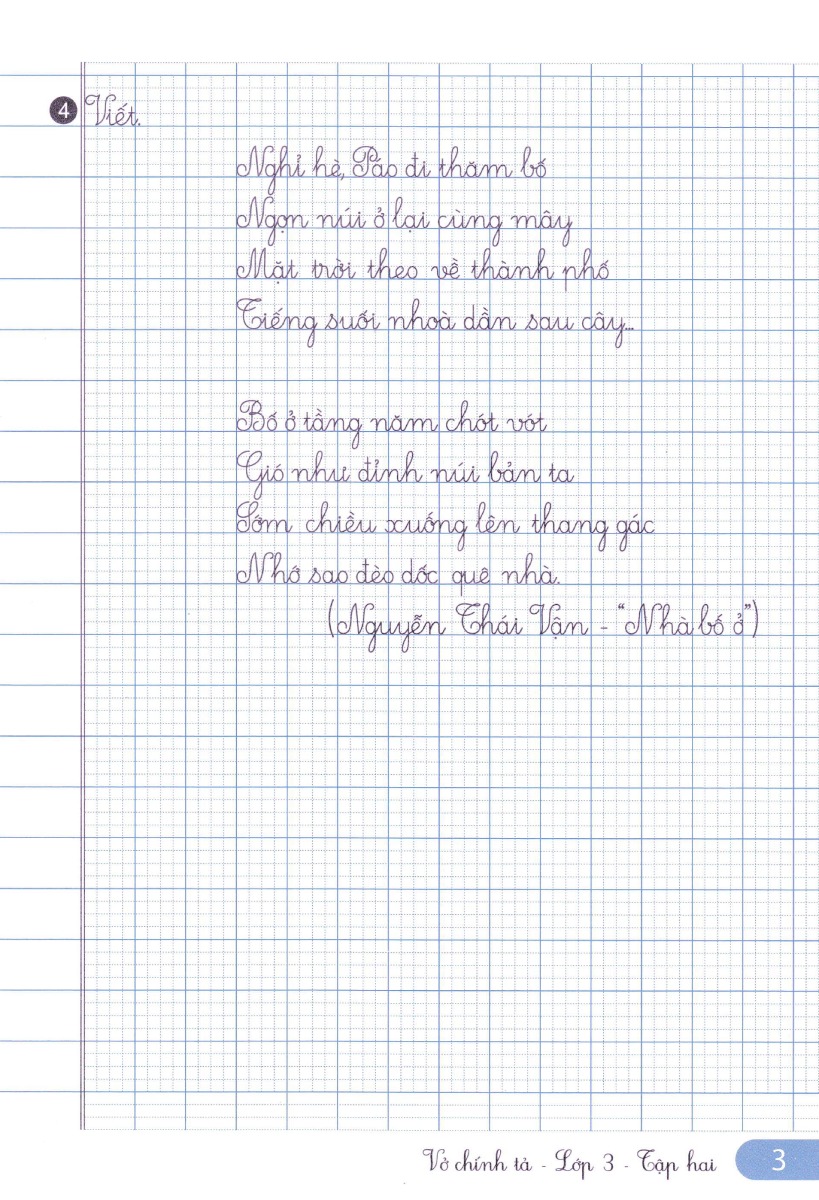 4 Viết.
Nghỉ hè, Páo đi thăm bố
Ngọn núi ở lại cùng mây
Mặt trời theo về thành phố
Tiếng suối nhoà dần sau cây...
Bố ở tầng năm chót vót
Gió như đỉnh núi bản ta
Sớm chiều xuống lên thang gác
Nhớ sao đèo dốc quê nhà.
(Nguyễn Thái Vận - “Nhà bố ở”)
Vở chính tả - Lớp 3 - Tập hai 3